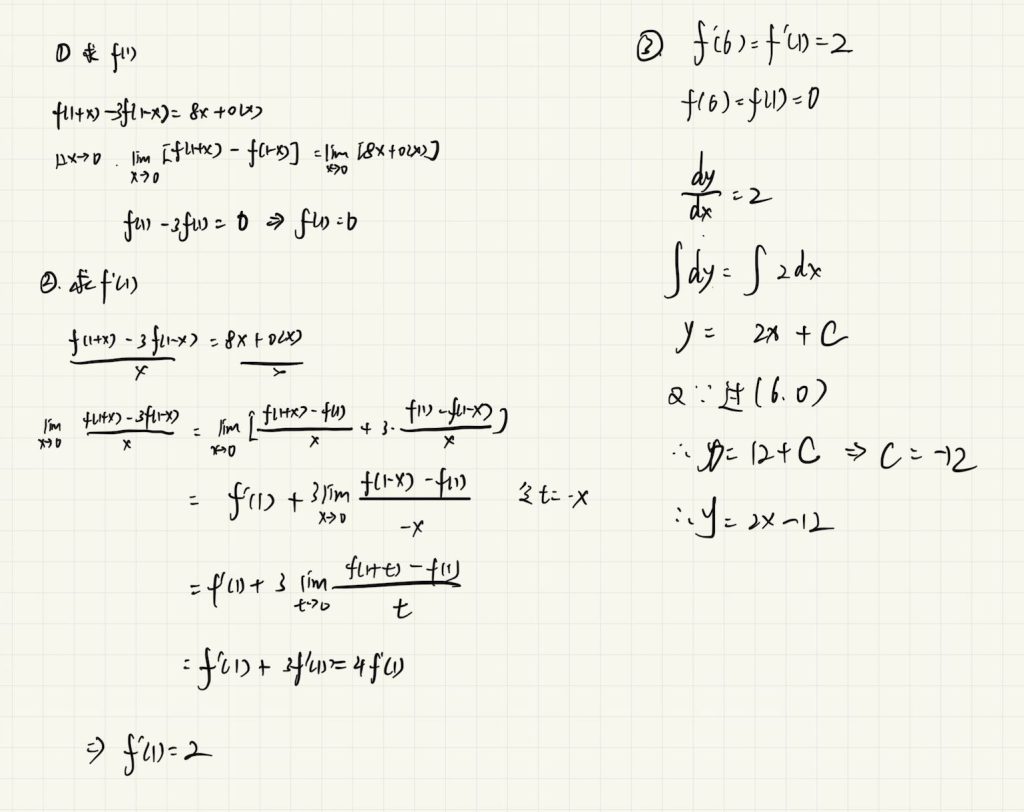 ① 求 f(1)
f(1+x)-3f(1-x)=8x+o(x)
x→0. lim_{x→0} [f(1+x) - f(1-x)] = lim_{x→0} [8x+o(x)]
f(1)-3f(1)=0 ⇒ f(1)=0
②. 求 f'(1)
\frac{f(1+x)-3f(1-x)}{x} = \frac{8x+o(x)}{x}
lim_{x→0} \frac{f(1+x)-3f(1-x)}{x} = lim_{x→0} [\frac{f(1+x)-f(1)}{x} + 3·\frac{f(1)-f(1-x)}{x}]
= f'(1) + 3 lim_{x→0} \frac{f(1-x)-f(1)}{-x} 令 t=-x
= f'(1) + 3 lim_{t→0} \frac{f(1+t)-f(1)}{t}
= f'(1) + 3f'(1) = 4f'(1)
⇒ f'(1)=2
③ f'(6)=f'(1)=2
f(6)=f(1)=0
\frac{dy}{dx}=2
∫dy=∫2dx
y= 2x+C
又∵过(6.0)
∴0=12+C ⇒ C=-12
∴y=2x-12